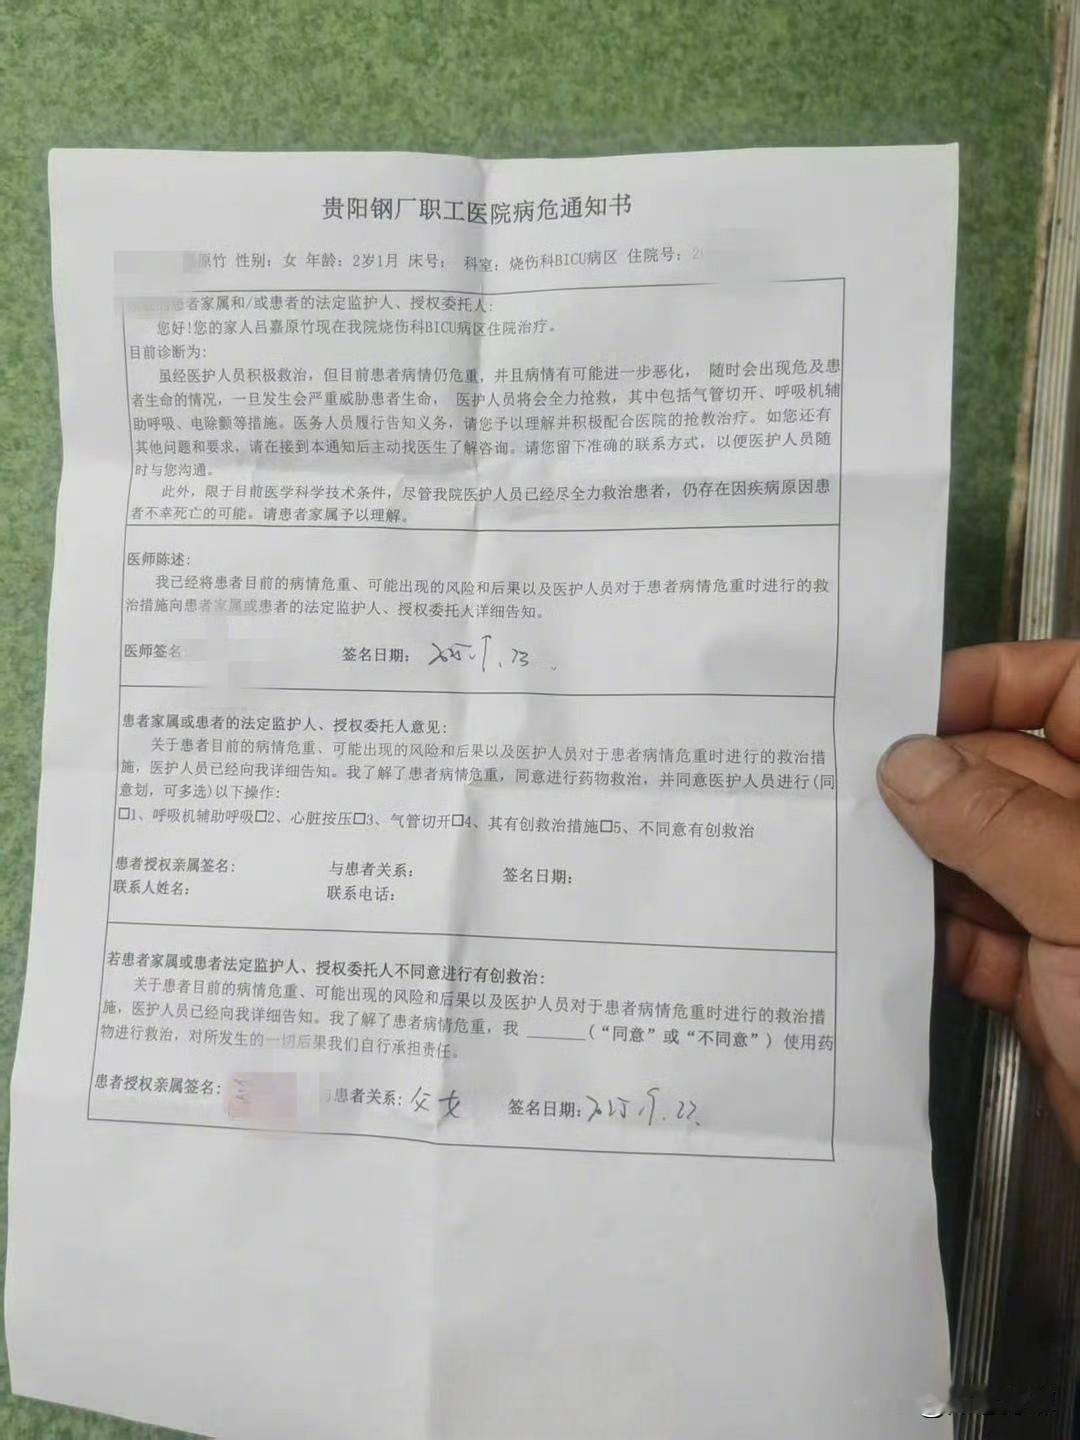 贵阳钢厂职工医院病危通知书
原竹 性别：女 年龄：2岁1月 床号： 科室：烧伤科BICU病区 住院号：2
患者家属和/或患者的法定监护人、授权委托人：
您好！您的家人吕嘉原竹现在我院烧伤科BICU病区住院治疗。
目前诊断为：
虽经医护人员积极救治，但目前患者病情仍危重，并且病情有可能进一步恶化， 随时会出现危及患
者生命的情况，一旦发生会严重威胁患者生命， 医护人员将会全力抢救，其中包括气管切开、呼吸机辅
助呼吸、电除颤等措施。医务人员履行告知义务，请您予以理解并积极配合医院的抢救治疗。如您还有
其他问题和要求，请在接到本通知后主动找医生了解咨询。请您留下准确的联系方式，以便医护人员随
时与您沟通。
此外，限于目前医学科学技术条件，尽管我院医护人员已经尽全力救治患者，仍存在因疾病原因患
者不幸死亡的可能。请患者家属予以理解。
医师陈述：
我已经将患者目前的病情危重、可能出现的风险和后果以及医护人员对于患者病情危重时进行的救
治措施向患者家属或患者的法定监护人、授权委托人详细告知。
医师签名： 签名日期： 2025.9.23
患者家属或患者的法定监护人、授权委托人意见：
关于患者目前的病情危重、可能出现的风险和后果以及医护人员对于患者病情危重时进行的救治措
施，医护人员已经向我详细告知。我了解了患者病情危重，同意进行药物救治，并同意医护人员进行(同
意划，可多选)以下操作：
□1、呼吸机辅助呼吸□2、心脏按压□3、气管切开□4、其有创救治措施□5、不同意有创救治
患者授权亲属签名： 与患者关系： 签名日期：
联系人姓名： 联系电话：
若患者家属或患者法定监护人、授权委托人不同意进行有创救治：
关于患者目前的病情危重、可能出现的风险和后果以及医护人员对于患者病情危重时进行的救治措
施，医护人员已经向我详细告知。我了解了患者病情危重，我 ______(“同意”或“不同意”) 使用药
物进行救治，对所发生的一切后果我们自行承担责任。
患者授权亲属签名： 与患者关系：父女 签名日期：2025.9.23.